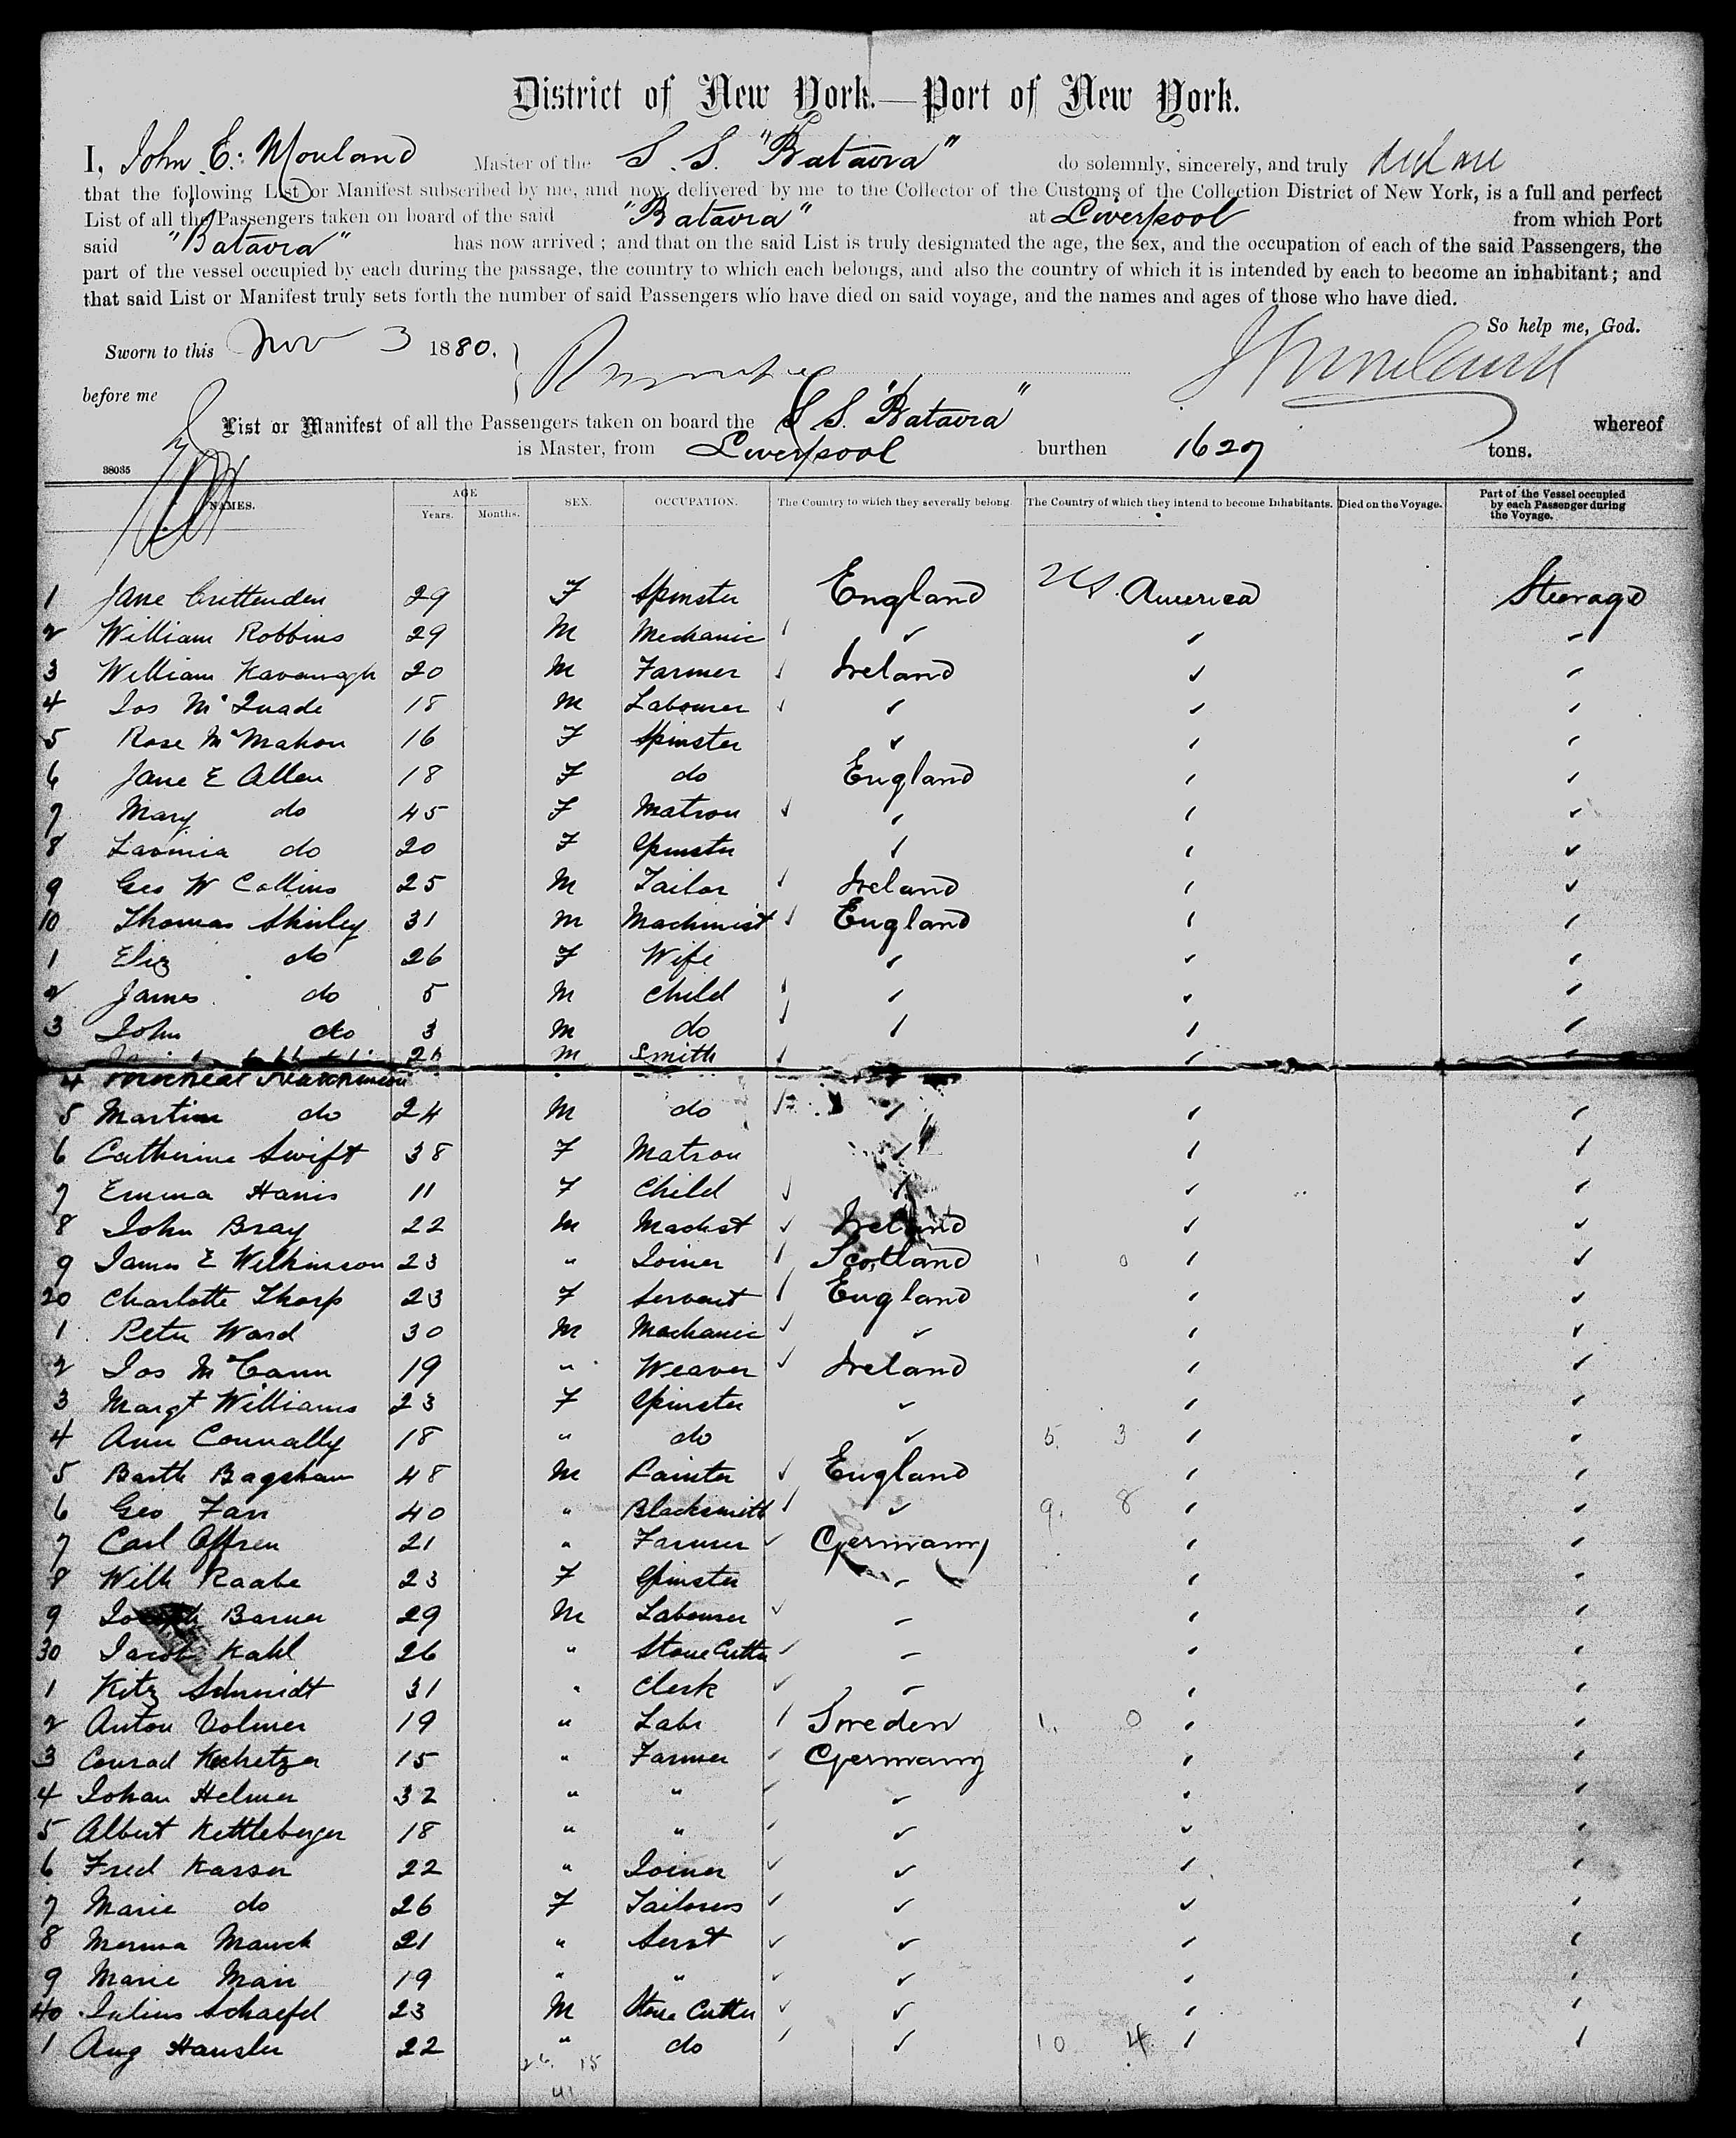 District of New York.—Port of New York.
I, John E. Mouland Master of the S. S. "Batavia" do solemnly, sincerely, and truly declare
that the following List or Manifest subscribed by me, and now delivered by me to the Collector of the Customs of the Collection District of New York, is a full and perfect
List of all the Passengers taken on board of the said "Batavia" at Liverpool from which Port
said "Batavia" has now arrived; and that on the said List is truly designated the age, the sex, and the occupation of each of the said Passengers, the
part of the vessel occupied by each during the passage, the country to which each belongs, and also the country of which it is intended by each to become an inhabitant; and
that said List or Manifest truly sets forth the number of said Passengers who have died on said voyage, and the names and ages of those who have died.
So help me, God.
Sworn to this Nov 3 1880.
before me
List or Manifest of all the Passengers taken on board the S S. "Batavia" whereof
is Master, from Liverpool burthen 1627 tons.
38035
NAMES. AGE Years. Months. SEX. OCCUPATION. The Country to which they severally belong. The Country of which they intend to become Inhabitants. Died on the Voyage. Part of the Vessel occupied by each Passenger during the Voyage.
1 Jane Crittenden 29 F Spinster England US. America Steerage
2 William Robbins 29 M Mechanic ✓ ✓ ✓
3 William Kavanagh 20 M Farmer ✓ Ireland ✓ ✓
4 Jos McQuade 18 M Labourer ✓ ✓ ✓ ✓
5 Rose McMahon 16 F Spinster ✓ ✓ ✓
6 Jane E Allen 18 F do England ✓ ✓
7 Mary do 45 F Matron ✓ ✓ ✓ ✓
8 Lavinia do 20 F Spinster ✓ ✓ ✓
9 Geo W Collins 25 M Tailor ✓ Ireland ✓ ✓
10 Thomas Shirley 31 M Machinist ✓ England ✓ ✓
1 Eliz do 26 F Wife ✓ ✓ ✓
2 James do 5 M Child ✓ ✓ ✓ ✓
3 John do 3 M do ✓ ✓ ✓ ✓
4 Micheal Hutchinson 26 M Smith ✓ ✓ ✓
5 Martin do 24 M do ✓ ✓ ✓
6 Catherine Swift 38 F Matron ✓ ✓ ✓
7 Emma Harris 11 F Child ✓ ✓ ✓ ✓
8 John Bray 22 M Machist ✓ Ireland ✓ ✓
9 James E Wilkinson 23 " Joiner ✓ Scotland 1 0 ✓ ✓
20 Charlotte Thorp 23 F Servant ✓ England ✓ ✓
1 Peter Ward 30 M Mechanic ✓ ✓ ✓ ✓
2 Jos McCann 19 " Weaver ✓ Ireland ✓ ✓
3 Margt Williams 23 F Spinster ✓ ✓ ✓
4 Ann Connally 18 " do ✓ 5. 3 ✓ ✓
5 Barth Bagshaw 48 M Painter ✓ England ✓ ✓
6 Geo Farr 40 " Blacksmith ✓ ✓ 9. 8 ✓ ✓
7 Carl Offren 21 " Farmer ✓ Germany ✓ ✓
8 Wilh Raabe 23 F Spinster ✓ ✓ ✓
9 Joseph Barner 29 M Labourer ✓ ✓ ✓ ✓
30 Jacob Kahl 26 " Stone Cutter ✓ ✓ ✓ ✓
1 Kitz Schmidt 31 " Clerk ✓ ✓ ✓ ✓
2 Anton Volmer 19 " Labr ✓ Sweden 1. 0 ✓ ✓
3 Conrad 15 " Farmer ✓ Germany ✓ ✓
4 Johan Helmer 32 " " ✓ ✓ ✓ ✓
5 Albert Kettleberger 18 " " ✓ ✓ ✓ ✓
6 Fred Karser 22 " Joiner ✓ ✓ ✓ ✓
7 Marie do 26 F Tailoress ✓ ✓ ✓ ✓
8 Menna Mauch 21 " Servt ✓ ✓ ✓ ✓
9 Marie Mair 19 " " ✓ ✓ ✓ ✓
40 Julius Schaefel 23 M Stone Cutter ✓ ✓ ✓ ✓
1 Aug Hansler 22 " do ✓ ✓ 10 4 ✓ ✓
26. 15
41